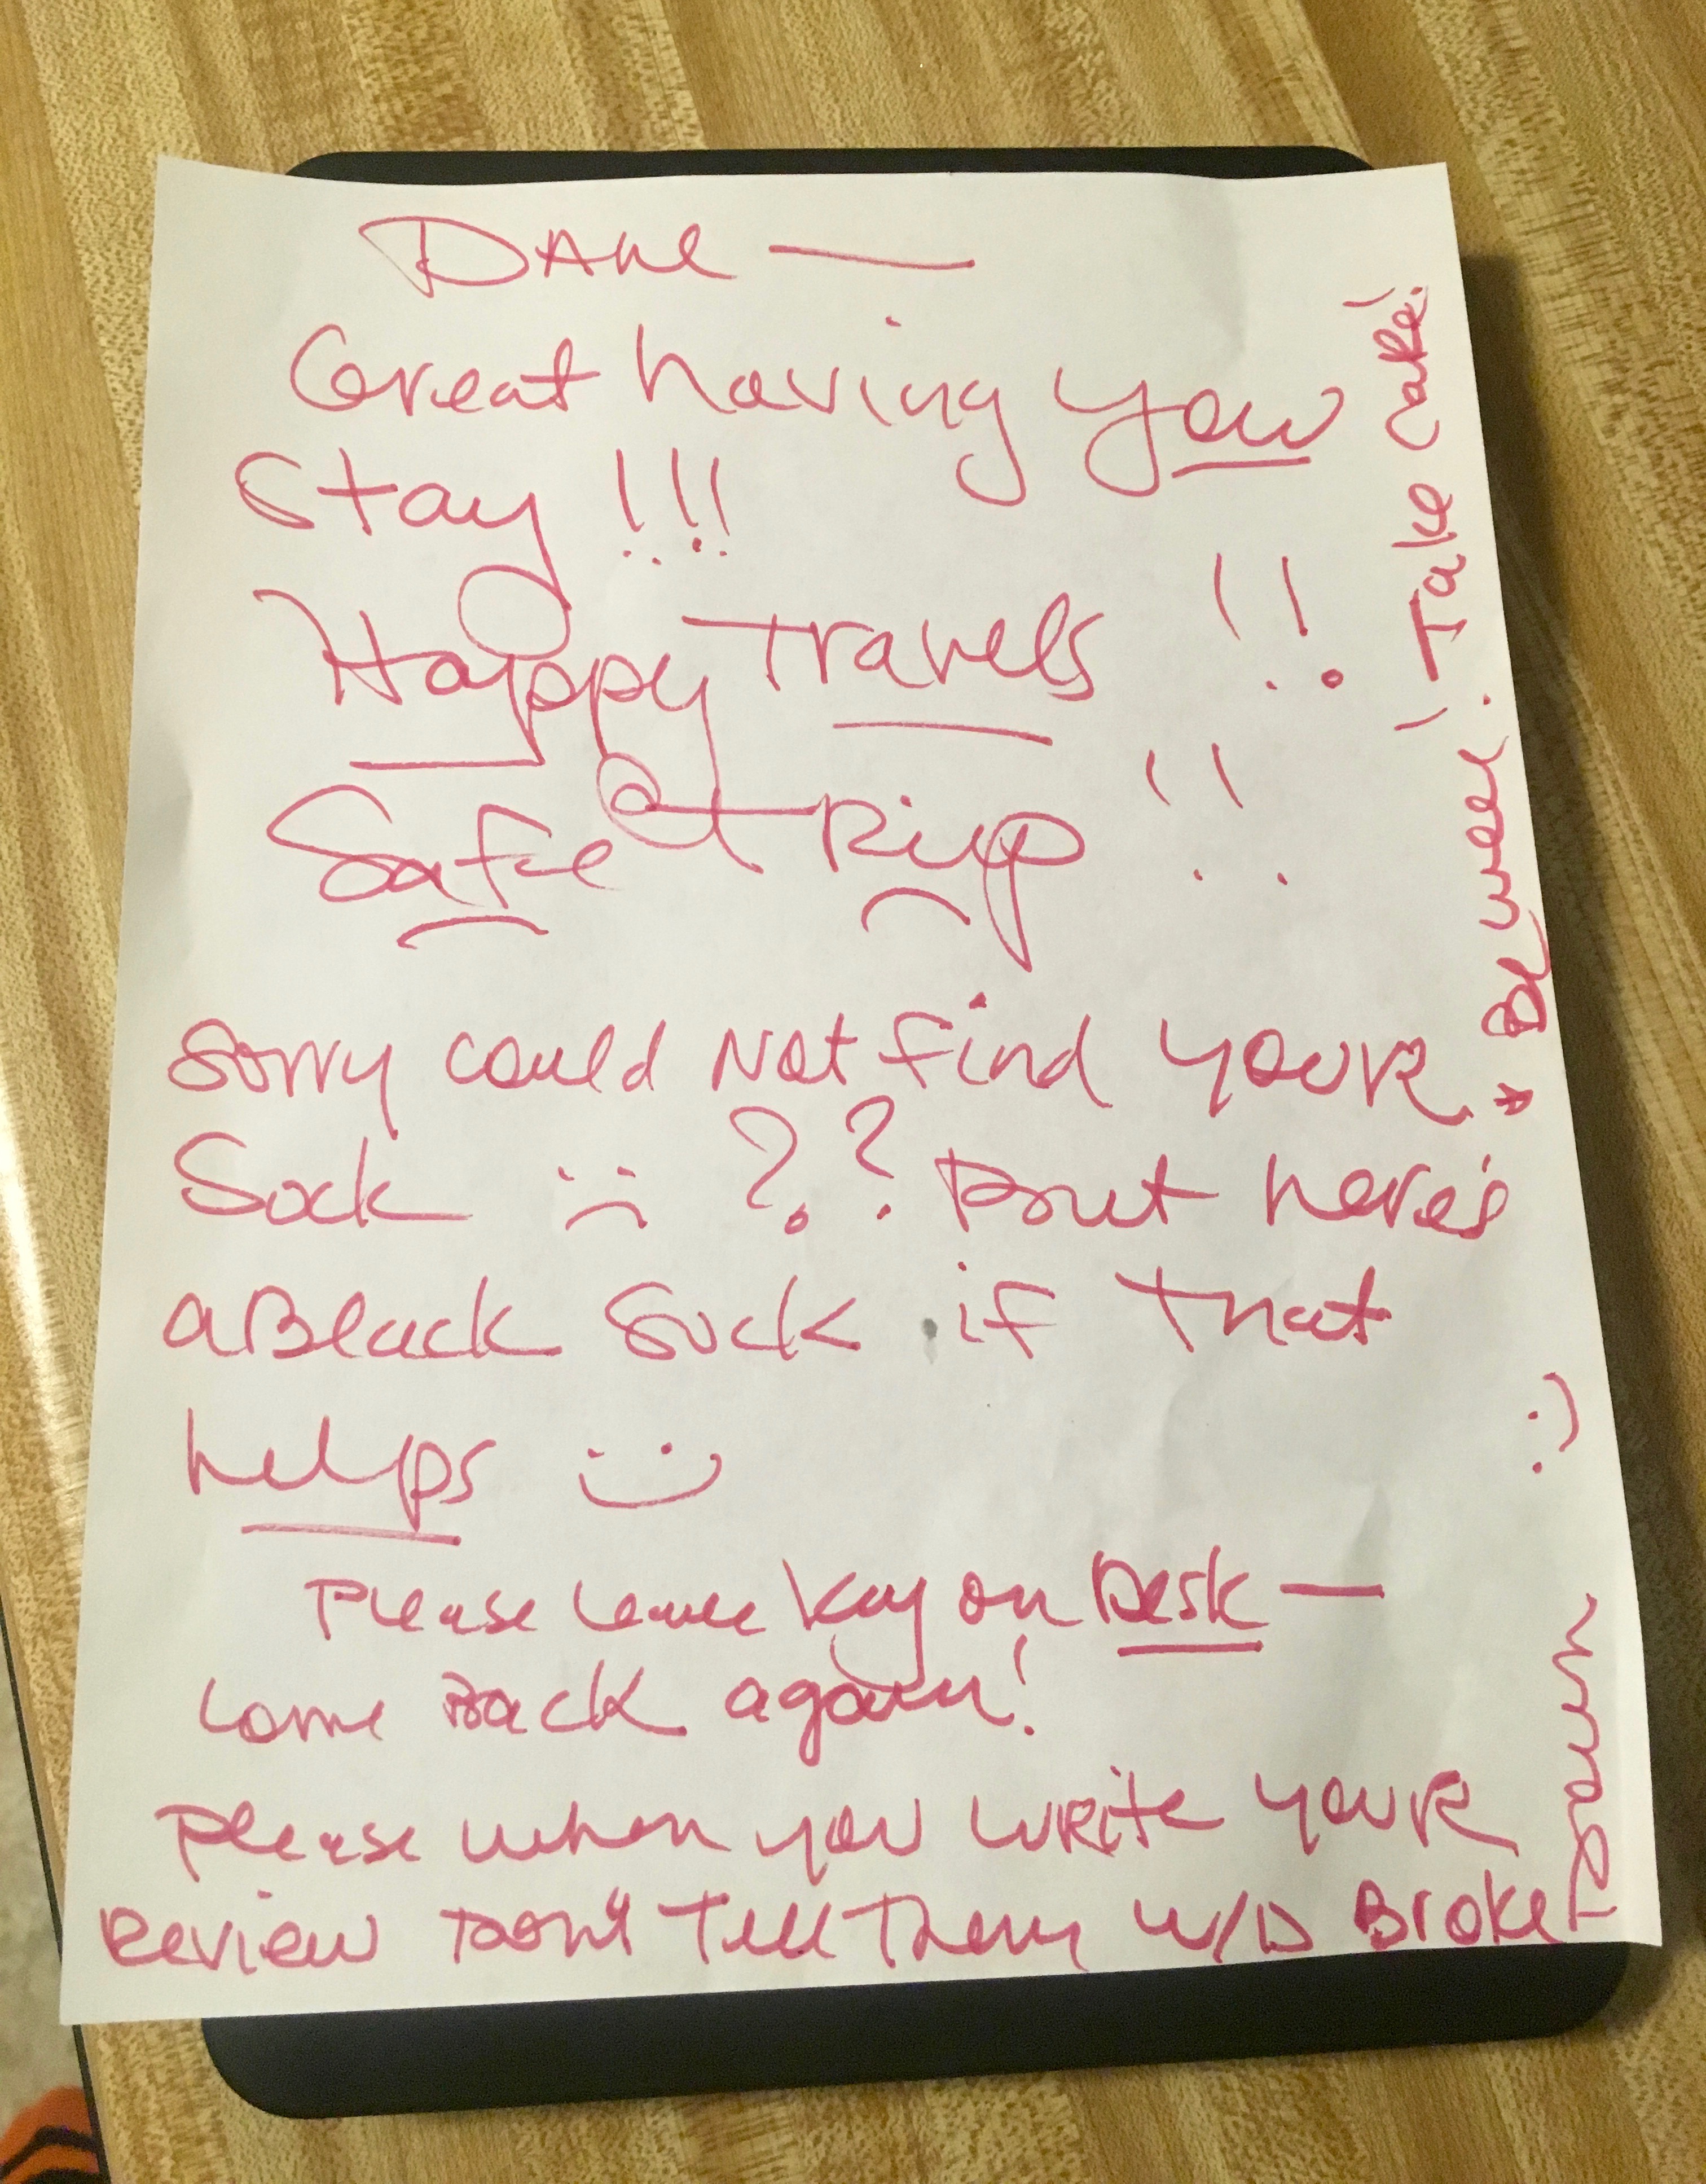 Dave —
Great having you
Stay !!!
Happy Travels !!
Safe tRip !!
Sorry could Not find youR
Sock :( ?? But here's
a Black Sock if that
helps :)
Please leave key on Desk —
Come Back again!
Please when you WRite youR
Review Don't Tell Them W/D Broke
* Be well! Take caRe!
:)